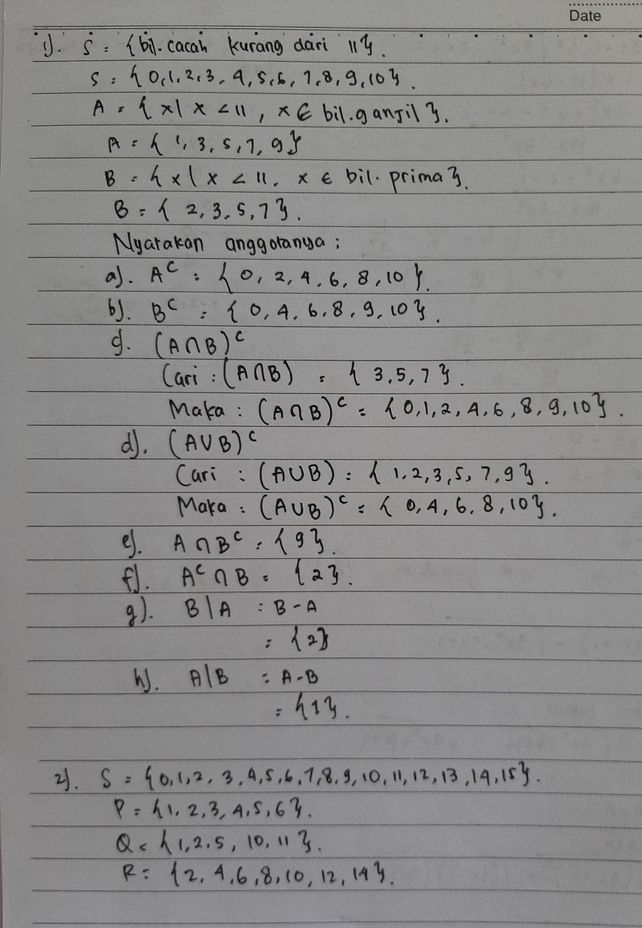 Date
1). S = {bil. cacah kurang dari 11}.
S = {0,1,2,3,4,5,6,7,8,9,10}.
A = {x| x < 11, x ∈ bil.ganjil}.
A = {1, 3, 5, 7, 9}
B = {x| x < 11, x ∈ bil. prima}.
B = {2, 3, 5, 7}.
Nyatakan anggotanya :
a). Aᶜ = {0, 2, 4, 6, 8, 10}.
b). Bᶜ = {0, 4, 6, 8, 9, 10}.
c). (A∩B)ᶜ
Cari : (A∩B) = {3,5,7}.
Maka : (A∩B)ᶜ = {0,1,2,4,6,8,9,10}.
d). (A∪B)ᶜ
Cari : (A∪B) = {1,2,3,5,7,9}.
Maka : (A∪B)ᶜ = {0,4,6,8,10}.
e). A∩Bᶜ = {9}.
f). Aᶜ∩B = {2}.
g). B|A = B-A
= {2}
h). A|B = A-B
= {1}.
2). S = {0,1,2,3,4,5,6,7,8,9,10,11,12,13,14,15}.
P = {1,2,3,4,5,6}.
Q = {1,2,5,10,11}.
R = {2,4,6,8,10,12,14}.